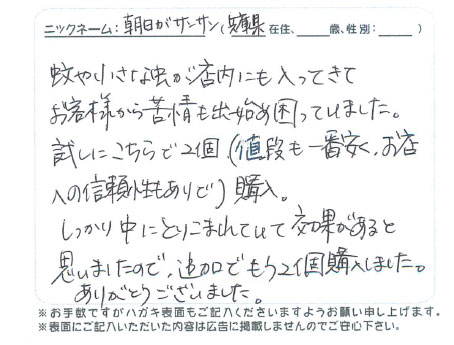 ニックネーム:朝日がサンサン(安曇県在住、___歳、性別:___)
蚊や小さな虫が店内にも入ってきて
お客様から苦情も出始め困っていました。
試しにこちらで2個(値段も一番安く、お店
への信頼性もありで)購入。
しっかり中にとりこまれていて効果があると
思いましたので、追加でもう2個購入しました。
ありがとうございました。
※お手数ですがハガキ表面もご記入くださいますようお願い申し上げます。
※表面にご記入いただいた内容は広告に掲載しませんのでご安心下さい。